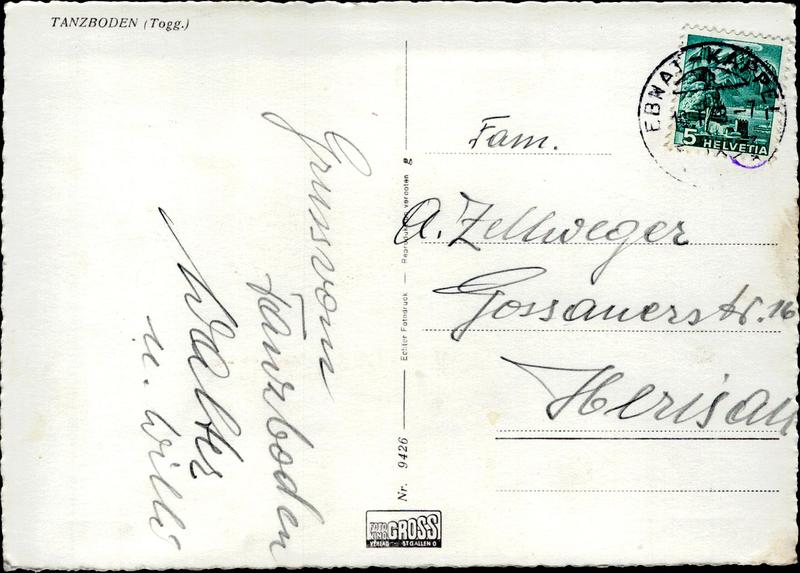 TANZBODEN (Togg.)
Gruss vom
Tanzboden
Walter
u. Willi
Echter Fotodruck — Reproduktion verboten
Nr. 9426
FOTO
KINO GROSS
VERLAG — ST GALLEN O
EBNAT-KAPPEL
5 HELVETIA
Fam.
A. Zellweger
Gossauerstr. 16
Herisau